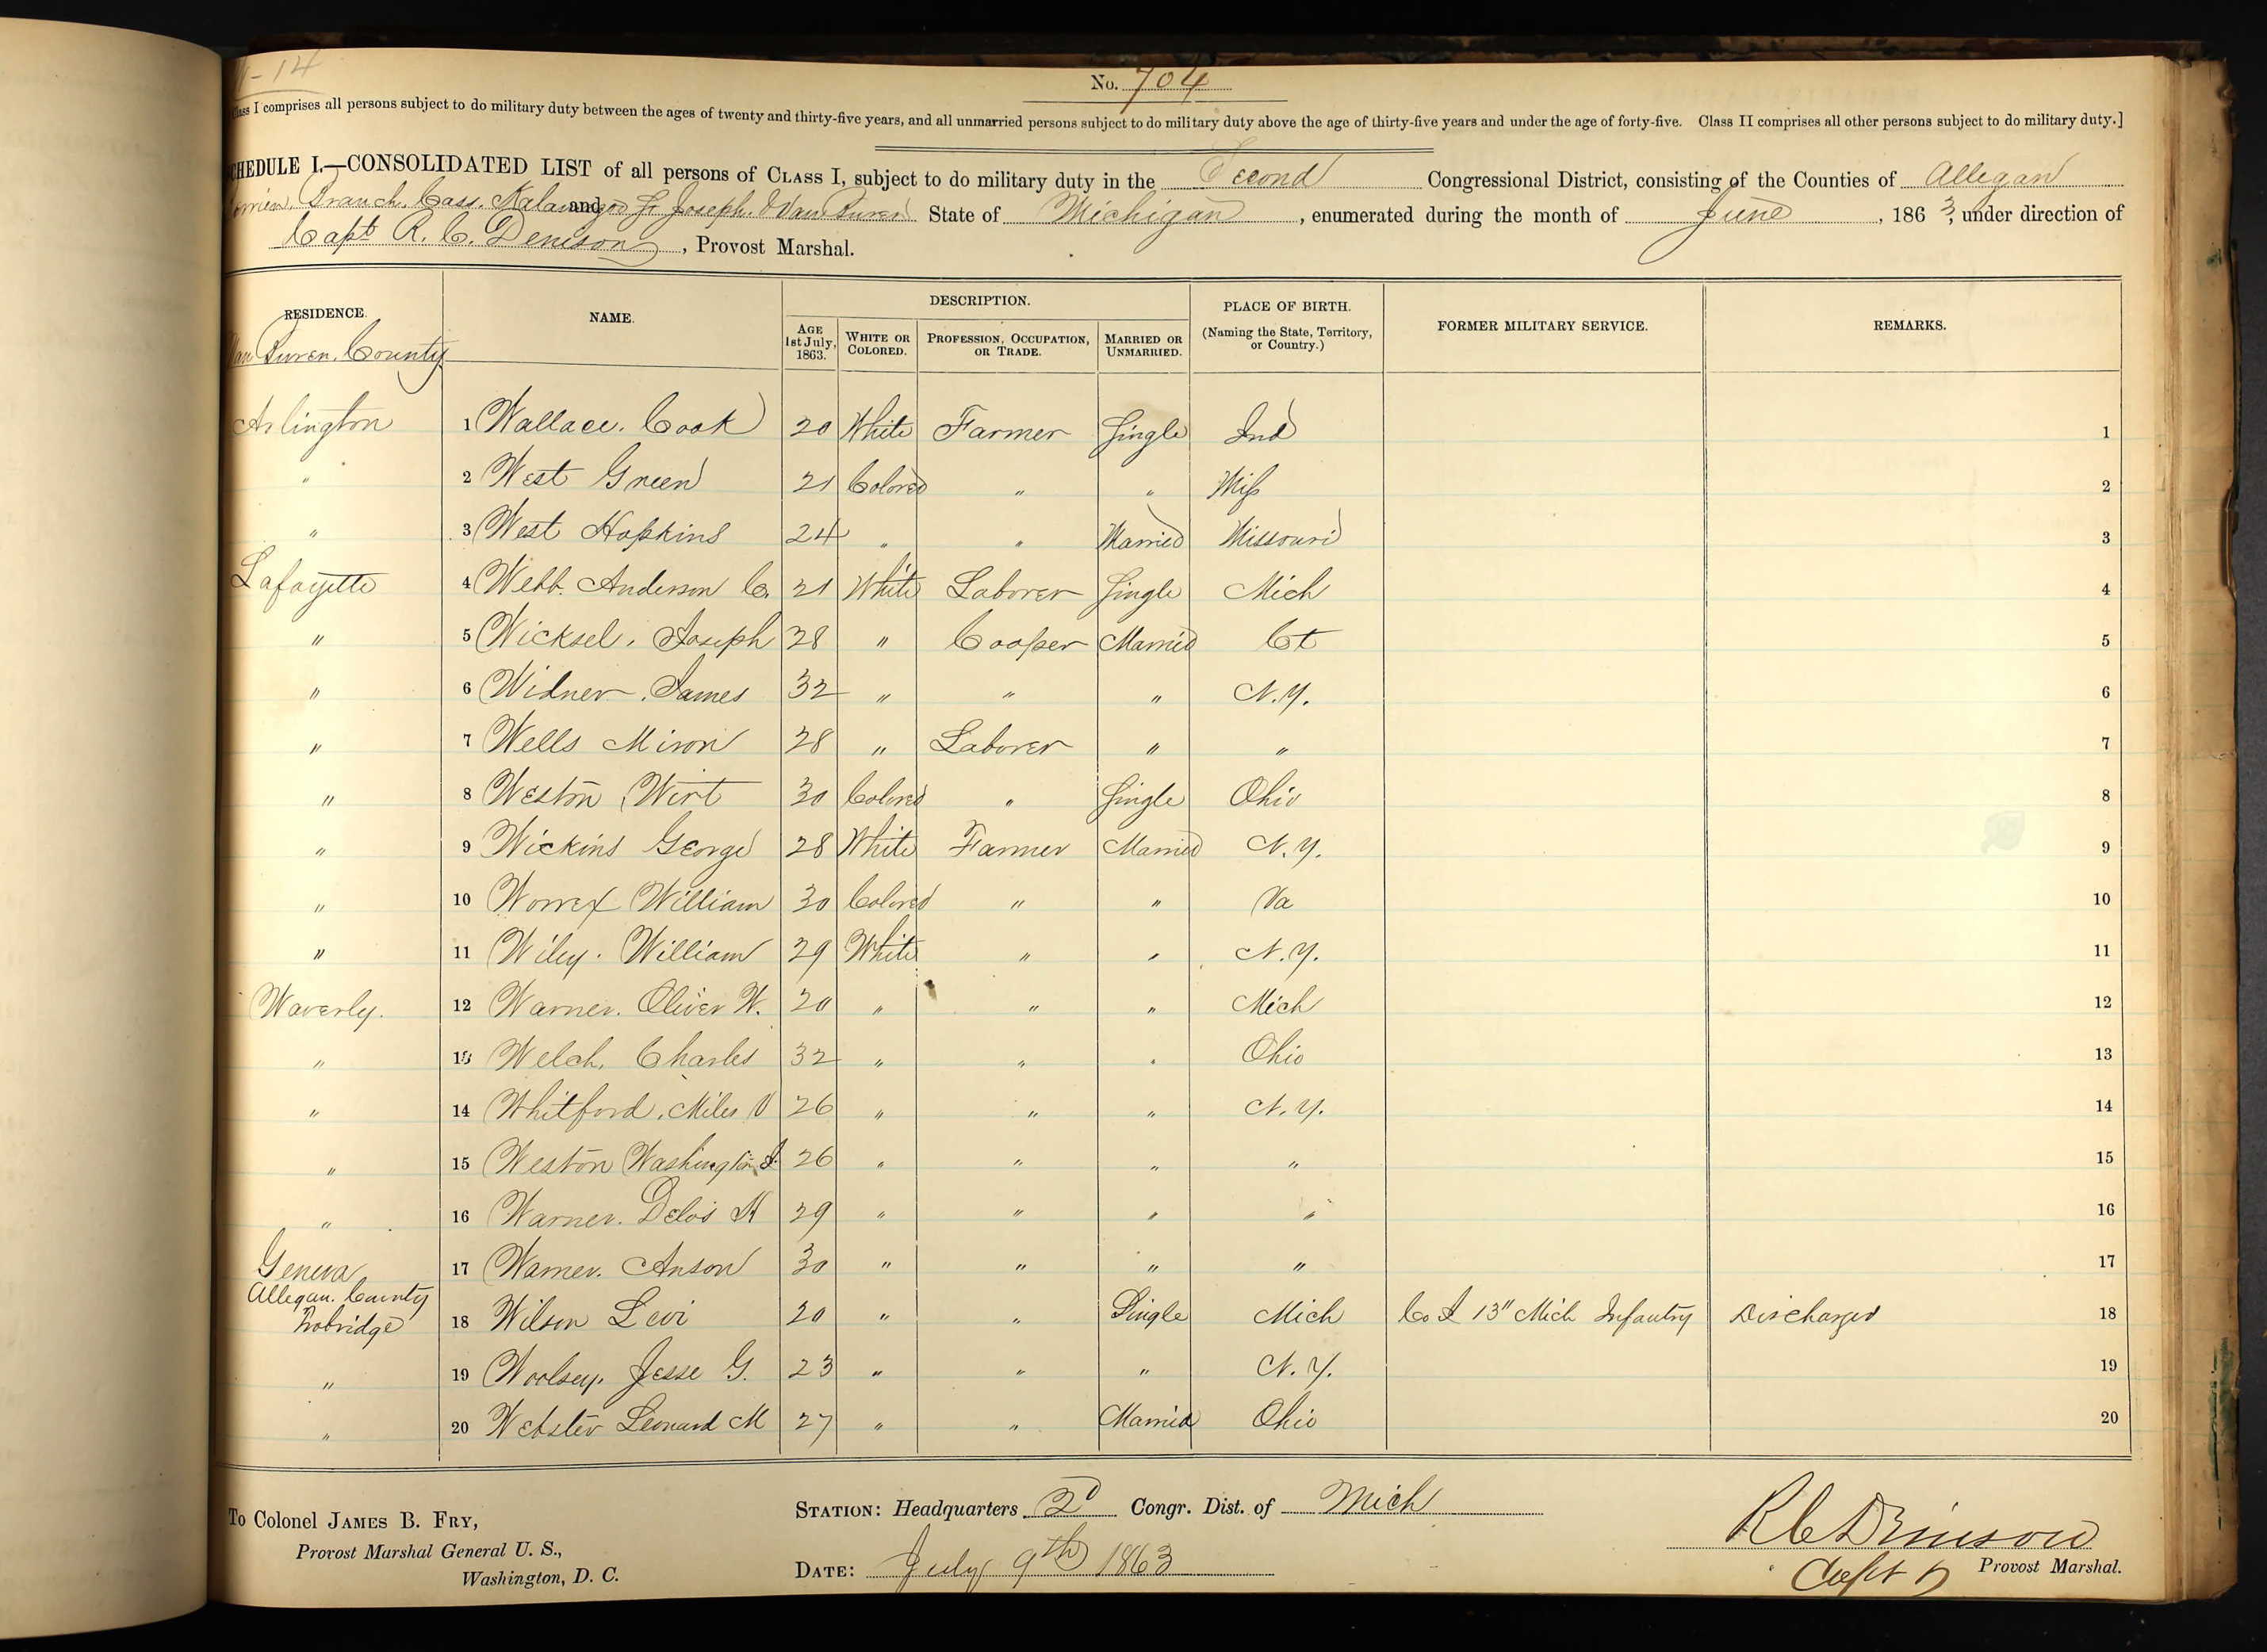 1-14
No. 704
Class I comprises all persons subject to do military duty between the ages of twenty and thirty-five years, and all unmarried persons subject to do military duty above the age of thirty-five years and under the age of forty-five. Class II comprises all other persons subject to do military duty.]
SCHEDULE I.—CONSOLIDATED LIST of all persons of CLASS I, subject to do military duty in the Second Congressional District, consisting of the Counties of Allegan
Berrien, Branch, Cass, Kalamazoo and St Joseph & Van Buren State of Michigan, enumerated during the month of June, 1863, under direction of
Capt R. C. Denison, Provost Marshal.
RESIDENCE. NAME. DESCRIPTION. PLACE OF BIRTH. (Naming the State, Territory, or Country.) FORMER MILITARY SERVICE. REMARKS.
AGE 1st July, 1863. WHITE OR COLORED. PROFESSION, OCCUPATION, OR TRADE. MARRIED OR UNMARRIED.
Van Buren County
Arlington 1 Wallace. Cook 20 White Farmer Single Ind 1
" 2 West Green 21 Colored " " Miss 2
" 3 West Hopkins 24 " " Married Missouri 3
Lafayette 4 Webb. Anderson C. 21 White Laborer Single Mich 4
" 5 Wicksel, Joseph 28 " Cooper Married Ct 5
" 6 Widner, James 32 " " " N.Y. 6
" 7 Wells Miron 28 " Laborer " " 7
" 8 Weston, Wirt 30 Colored " Single Ohio 8
" 9 Wickins George 28 White Farmer Married N.Y. 9
" 10 Worrex William 30 Colored " " Va 10
" 11 Wiley. William 29 White " " N.Y. 11
Waverly. 12 Warner. Oliver W. 20 " " " Mich 12
" 13 Welch, Charles 32 " " " Ohio 13
" 14 Whitford, Miles V 26 " " " N.Y. 14
" 15 Weston Washington I. 26 " " " " 15
" 16 Warner. Delos K 29 " " " " 16
Geneva 17 Warner. Anson 30 " " " " 17
Allegan. County
Trobridge 18 Wilson Levi 20 " " Single Mich Co I 13" Mich Infantry Discharged 18
" 19 Woolsey, Jesse G. 23 " " " N.Y. 19
" 20 Webster Leonard M 27 " " Married Ohio 20
To Colonel JAMES B. FRY,
Provost Marshal General U. S.,
Washington, D. C.
STATION: Headquarters 2d Congr. Dist. of Mich
DATE: July 9th 1863
R C Denison
Capt &
Provost Marshal.